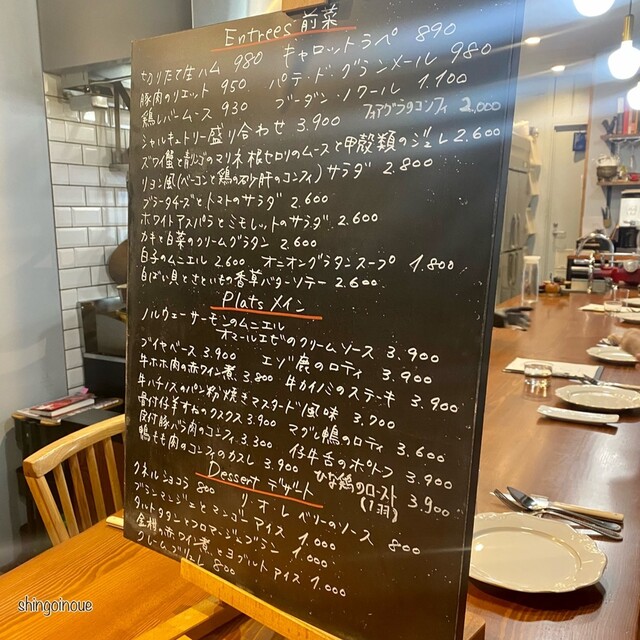 Entrees 前菜
切りたて生ハム 980 キャロットラペ 890
豚肉のリエット 950 パテ・ド・グランメール 980
鶏レバームース 930 ブーダン・ノワール 1.100
シャルキュトリー盛り合わせ 3.900 フォアグラコンフィ 2,000
ズワイ蟹と青リンゴのマリネ 根セロリのムースと甲殻類のジュレ 2.600
リヨン風(ベーコンと鶏の砂肝のコンフィ)サラダ 2.800
ブラータチーズとトマトのサラダ 2.600
ホワイトアスパラとミモレットのサラダ 2.600
カキと白菜のクリームグラタン 2.600
白子のムニエル 2.600 オニオングラタンスープ 1.800
白ばい貝とさといもの香草バターソテー 2.600
Plats メイン
ノルウェーサーモンのムニエル
オマールエビのクリームソース 3.900
ブイヤベース 3.900 エゾ鹿のロティ 3.900
牛ホホ肉の赤ワイン煮 3.800 牛カイノミのステーキ 3.900
牛ハチノスのパン粉焼きマスタード風味 3.700
骨付仔羊すねのクスクス 3.900 マグレ鴨のロティ 3.600
皮付豚バラ肉のコンフィ 3.300 仔牛舌のポトフ 3.900
鴨もも肉のコンフィのカスレ 3.900 ひな鶏のロースト (1羽) 3.900
Dessert デザート
クネルショコラ 800 リ・オ・レ ベリーのソース 800
ブランマンジェとマンゴーアイス 1.000
タルトタタンとフロマージュブラン 1.000
金柑の赤ワイン煮とヨーグルトアイス 1.000
クレームブリュレ 800
shingoinoue